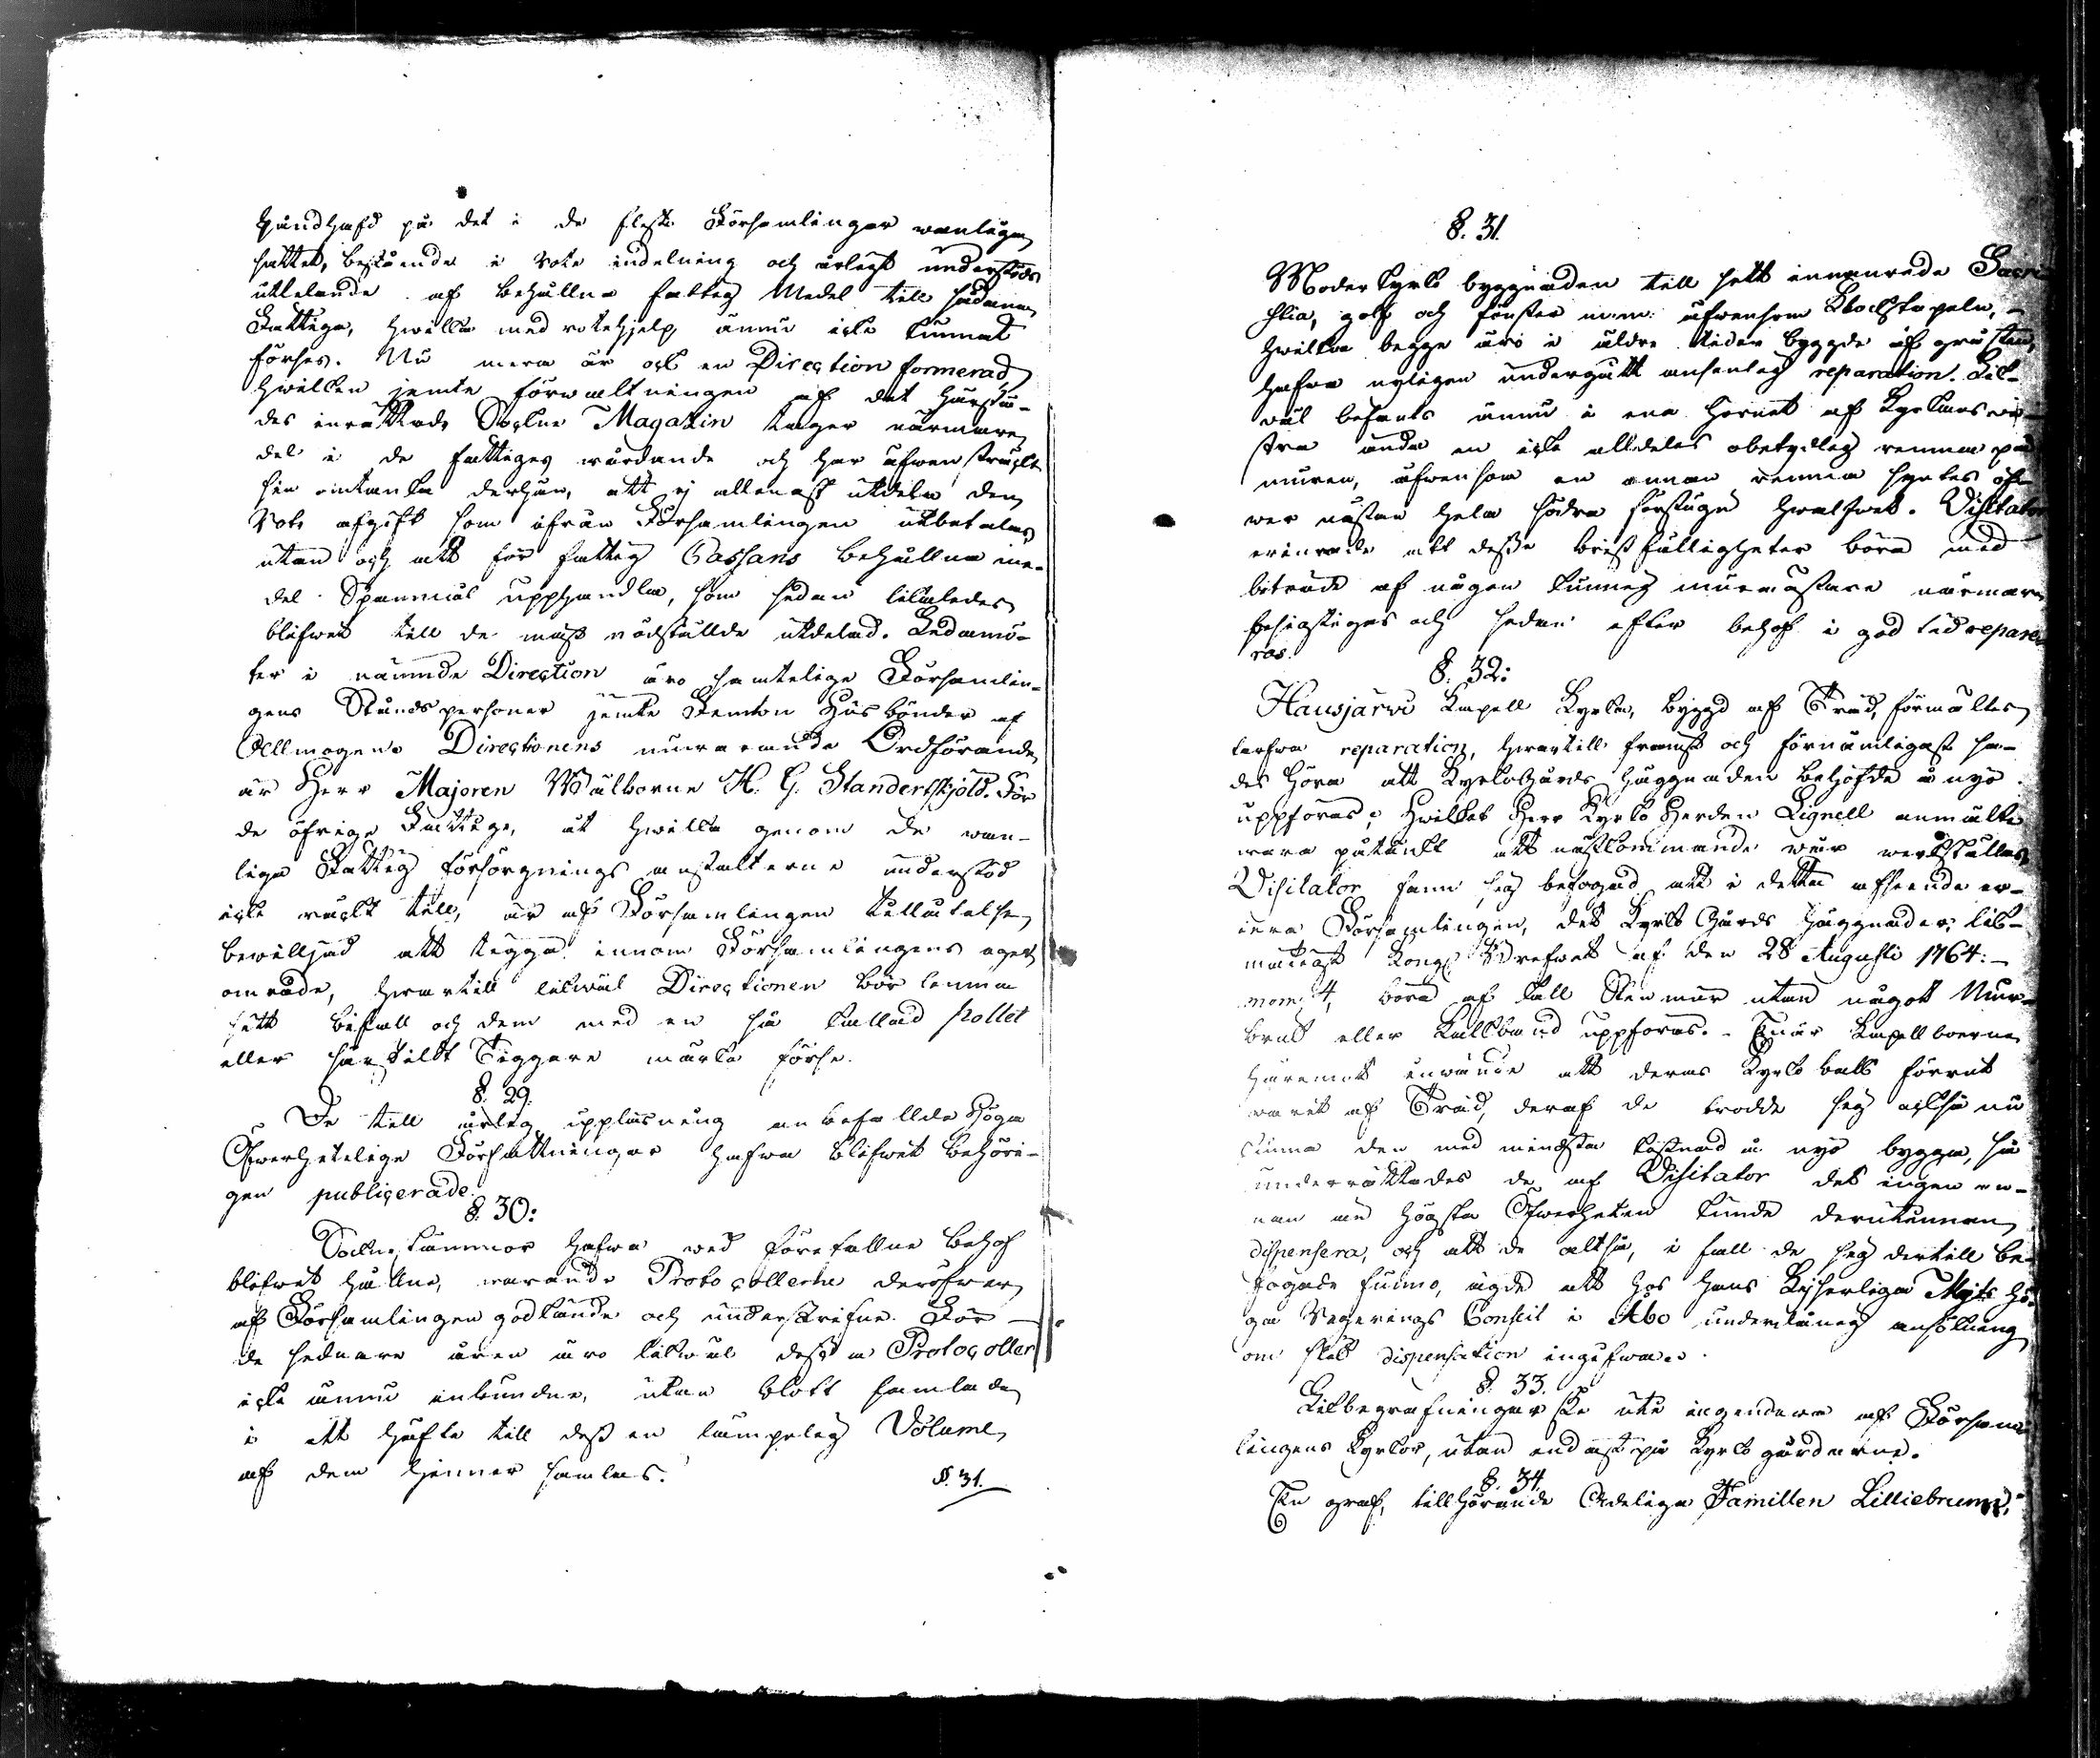 handhafd på det i de flesta Församlingar wanliga
sättet, bestående i Rote indelning och årligt understöds
utdelande af behållne fattig Medel till sådana
Fattiga, hwilka med rotehjelp ännu icke kunnat
förses. Nu mera är ock en Direction formerad
hwilken jemte förwaltningen af det härstä-
des inrättade Sockne Magazin tager närmare
del i de fattiges wårdande och har äfwen sträckt
sin omtanka derhän, att ej allenast utdela den
Rote afgift som ifrån Församlingen utbetalas
utan och att för fattig Cassans behållna me-
del Spanmål upphandla, som sedan likaledes
blifwit till de mäst nödstälde utdelad. Ledamö-
ter i nämnde Direction äro samtelige Församlin-
gens Stånds personer jemte Femton Husbönder af
Allmogen. Directionens nuwarande Ordförande
är Herr Majoren Wälborne H. G. Standertskjöld. För
de öfrige Fattige, åt hwilka genom de wan-
liga Fattig försörgnings anstalterne understöd
icke räckt till, är af Församlingen tillåtelse
bewilljad att tigga innom Församlingens eget
område, hwartill likwäl Directionen bör lemna
sitt bifall och dem med en så kallad Pollet
eller särskildt Tiggare märke förse.
§. 29.
De till årlig uppläsning anbefallda Höga
Öfwerhetelige Författningar hafwa blifwit behöri-
gen publicerade.
§. 30:
Sockne stämmor hafwa wed förefallne behof
blifwit hållne, warande Protocollerne deröfwer
af Församlingen godkände och underskrifne. För
de sednare åren äro likwäl dessa Protocoller
icke ännu inbundne, utan blott samlade
i ett häfte till dess en lämpelig Volume
af dem hinner samlas.
§. 31.
§. 31.
Moderkyrko byggnaden till sitt innanrede Sacri-
stia, golf och fönster m.m. äfwensom Klockstapeln,
hwilka begge äro i äldre tider byggde af gråsten,
hafwa nyligen undergått ansenlig reparation. Lik-
wäl befants ännu i ena hörnet af Kyrkans wä-
stra ända en icke alldeles obetydlig remna på
muren, äfwensom en annan remna syntes öf-
wer nästan hela södra förstugu hwalfwet. Visitator
erinrade att desse bristfälligheter böra med
biträde af någon kunnig murmästare närmare
besigtigas och sedan efter behof i god tid repare-
ras.
§. 32:
Hausjärwi Kapell Kyrka, byggd af Träd, förmältes
tarfwa reparation, hwartill främst och förnämligast sa-
des höra att Kyrkogårds häggnaden behöfde å nyo
uppföras; hwilket Herr Kyrko Herden Lignell anmälte
wara påtänkt att nästkommande wår werkställas.
Visitator fann sig befogad att i detta afseende er-
inra Församlingen, det Kyrko Gårds häggnader, lik-
mätigt Kongl. Brefwet af den 28 Augusti 1764:
mom: 4, böra af kall Stenmur utan något Mur-
bruk eller Kalkband uppföras. - Enär Kapellboerne
häremot inwände att deras Kyrko balk förrut
warit af Träd, deraf de trodde sig ock så nu
kunna den med mindsta kostnad å nyo bygga, så
underrättades de af Visitator det ingen an-
nan än högsta Öfwerheten kunde derutinnan
dispensera, och att de altså, i fall de sig dertill be-
fogade funno, ägde att hos Hans Kejserliga Majts Hö-
ga Regerings Conseil i Åbo underdånig ansökning
om slik dispensation ingifwa.
§. 33.
Likbegrafningar ske uti ingendera af Försam-
lingens Kyrkor, utan endast på Kyrkogårdarne.
§. 34.
En graf, tillhörande Adeliga Familien Lilliebrunn,